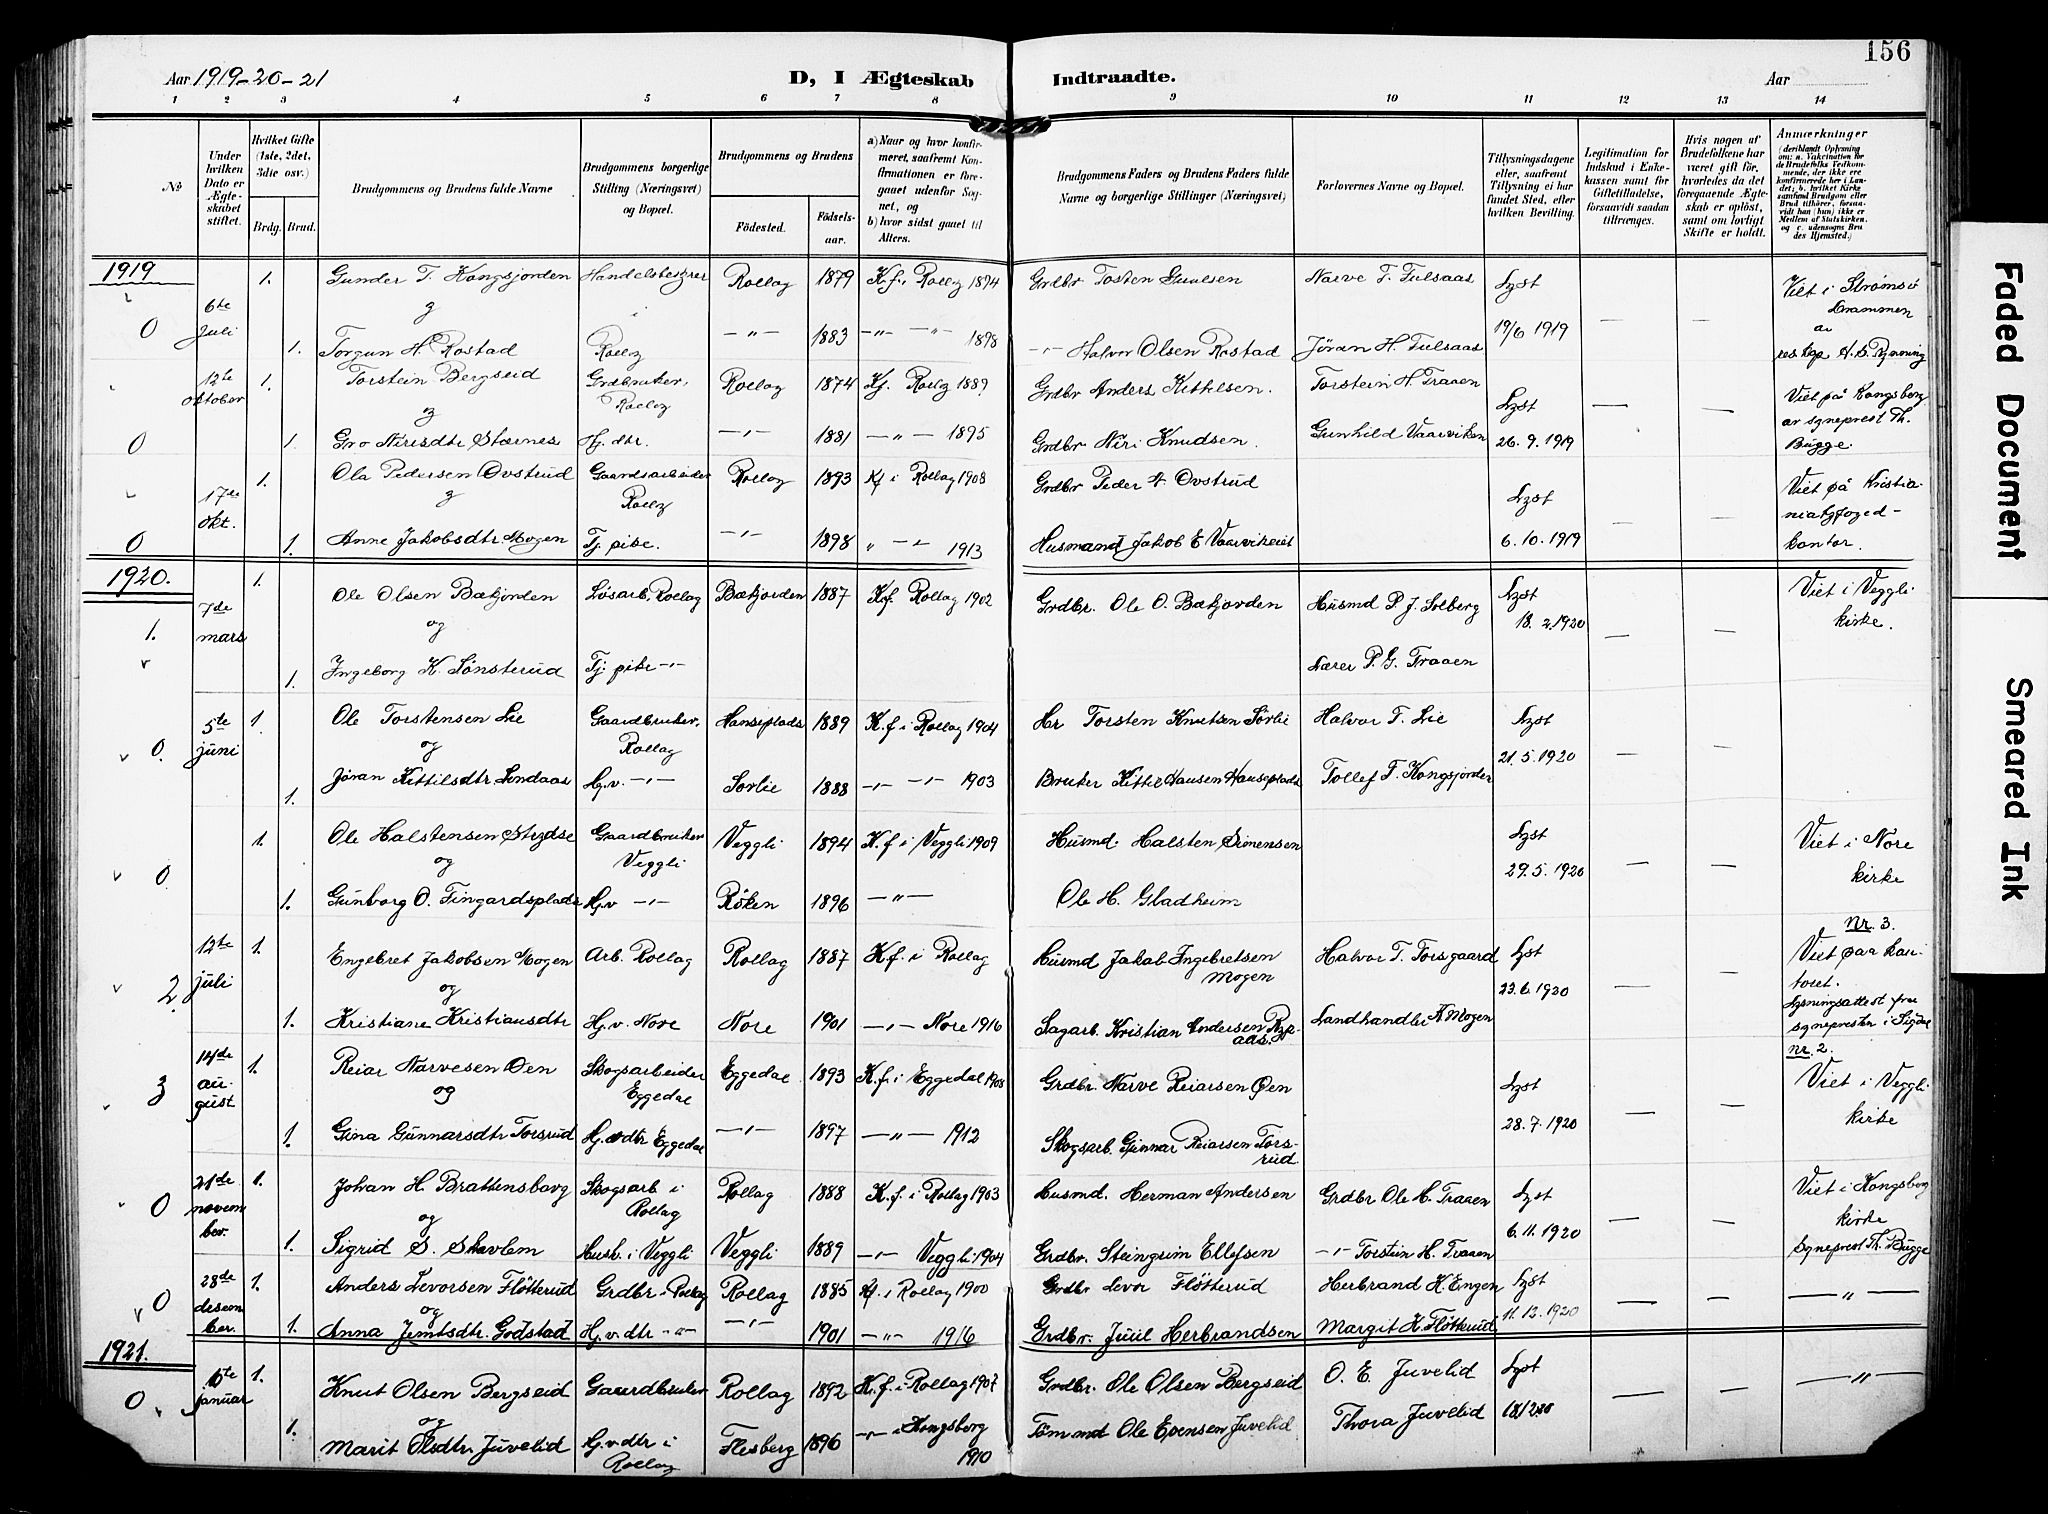 156
Aar 1919-20-21
D, I Ægteskab Indtraadte.
Aar
1 2 3 4 5 6 7 8 9 10 11 12 13 14
No
Under hvilken Dato er Ægteskabet stiftet.
Hvilket Gifte (1ste, 2det, 3die osv.)
Brdg. Brud.
Brudgommens og Brudens fulde Navne
Brudgommens borgerlige Stilling (Næringsvei) og Bopæl.
Brudgommens og Brudens
Fødested.
Fødselsaar.
a) Naar og hvor konfirmeret, saafremt Konfirmationen er foregaaet udenfor Sognet, og
b) hvor sidst gaaet til Alters.
Brudgommens Faders og Brudens Faders fulde Navne og borgerlige Stillinger (Næringsvei)
Forlovernes Navne og Bopæl.
Tillysningsdagene eller, saafremt Tillysning ei har fundet Sted, efter hvilken Bevilling.
Legitimation for Indskud i Enkekassen samt for Giftetilladelse, forsaavidt saadan tiltrænges.
Hvis nogen af Brudefolkene har været gift før, hvorledes da det foregaaende Ægteskab er opløst, samt om lovligt Skifte er holdt.
Anmærkninger
1919
0 6te Juli 1. Gunder T. Kongsjorden Handelsbestyrer Rollag 1879 K.f. i Rollag 1894 Grdbr Tosten Gunlsen Narve T. Fulsaas Lyst Viet i Strømsø
og i Drammen
1. Torgun H. Rostad Rollag —"— 1883 —"— —"— 1898 —"— Halvor Olsen Rostad Jøran H. Fulsaas 19/6 1919 av
res. kap.
12te oktober 1. Torstein Bergseid Grdbruker, Rollag Rollag 1874 Kf. Rollag 1889 Grdbr Anders Kittilsen. Torstein H. Traaen Lyst Viet på Kongsberg
og av sogneprest Th.
0 1. Gro Nirisdtr Stærnes Hj. dtr. —"— 1881 —"— 1895 Grdbr Niri Knudsen. Gunhild Vaarviken 26.9.1919 Bugge.
17de okt. 1. Ola Pedersen Ovstrud Gaardsarbeider Rollag Rollag 1893 Kf i Rollag 1908 Grdbr Peder A Ovstrud Lyst Viet på Kristia-
og
0 1. Anne Jakobsdtr Mogen Tj. pike. —"— 1898 " —"— 1913 Husmand Jakob E Vaarvikeiet 6.10.1919 kontor.
1920.
1. 7de mars 1. Ole Olsen Bækjorden Løsarb. Rollag Bækjorden 1887 K.f. Rollag 1902 Grdbr. Ole O. Bækjorden Husmd P. J. Solberg Lyst 18.2.1920 Viet i Veggli kirke.
og
1. Ingeborg K. Sønsterud Tj. pike —"— Lærer P. G. Traaen
0. 5te juni 1. Ole Torstensen Lie Gaardbruker, Rollag Hanseplads 1889 K.f i Rollag 1904 Hr Torsten Knutsen Sørlie Halvor T. Lie Lyst
og 21.5.1920
1. Jøran Kittilsdtr Lundaas Hj.v. —"— Sørlie 1888 —"— —"— 1903 Bruker Kittil Hansen Hanseplads Tollef T. Kongsjorden
0 1. Ole Halstensen Strydse Gaardbruker Veggli Veggli 1894 K.f i Veggli 1909 Husmd. Halsten Simensen Lyst Viet i Nore
og 29.5.1920 kirke
1. Gunborg O. Tingardsplads Hj.v —"— Røken 1896 —"— Ole H. Gladheim
nr. 3.
2. 12te juli 1. Engebret Jakobsen Mogen Arb. Rollag Rollag 1887 K.f. i Rollag Husmd Jakob Ingebretsen Mogen Halvor T. Forsgaard Lyst Viet paa kon-
og 23.6.1920 toret.
1. Kristiane Kristiansdtr Hj.v. Nore Nore 1901 —"— Nore 1916 Sagarb. Kristian Andersen Landhandler K Mogen Lysningsattest fra
sognepresten i Sigdal
nr. 2.
3 14de august 1. Reiar Narvesen Øen Skogsarbeider Eggedal Eggedal 1893 K.f. i Eggedal 1908 Grdbr. Narve Reiarsen Øen Lyst Viet i Veggli
og kirke
1. Gina Gunnarsdtr Torsrud Hj.v dtr Eggedal —"— 1897 —"— 1912 Skogsarb. Gunnar Reiarsen Torsrud 28.7.1920
0 21de november. 1. Johan H. Brattensborg Skogsarb i Rollag Rollag 1888 K.f. i Rollag 1903 Husmd. Herman Andersen Grdbr Ole H. Traaen Lyst Viet i Kongsberg
og kirke
1. Sigrid S. Skavlem Husb. i Veggli Veggli 1889 —"— Veggli 1904 Grdbr. Steingrim Ellefsen —"— Torstein H. Traaen 6.11.1920 Sogneprest Th. Bugge
0 28de desember. 1. Anders Levorsen Fløtterud Grdbr i Rollag Rollag 1885 Kf. i Rollag 1900 Grdbr Levor Fløtterud Herbrand H. Engen Lyst —"—
og
1. Anna Jemtsdtr. Grøstad Hj.v. dtr —"— —"— 1901 —"— 1916 Grdbr. Juul Herbrandsen Margit K. Fløtterud 11.12.1920
1921.
0 6te januar 1. Knut Olsen Bergseid Gaardbruker Rollag 1892 K.f. i Rollag 1907 Grdbr. Ole Olsen Bergseid O. E. Juvelid Lyst —"—
og
1. Marit Olsdtr. Juvelid Hj.v. dtr i Rollag Flesberg 1896 —"— i Kongsberg 1910 Tømmd Ole Evensen Juvelid Thora Juvelid 18/12 20
Faded Document
Smeared Ink